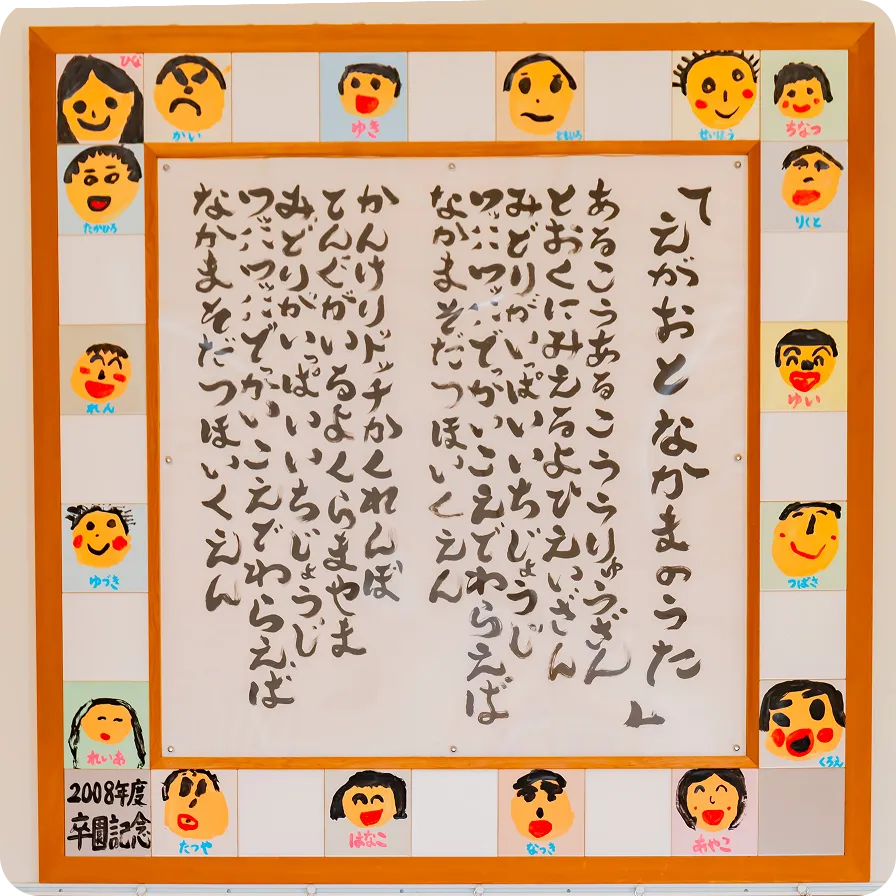 「えがおと なかまのうた」
あるこうあるこううりゅうざん
とおくにみえるよひえいざん
みどりがいっぱいいちじょうじ
ワッハハワッハハでっかいこえでわらえば
なかまそだつほいくえん
かんけりドッチかくれんぼ
てんぐがいるよくらまやま
みどりがいっぱいいちじょうじ
ワッハハワッハハでっかいこえでわらえば
なかまそだつほいくえん
ひな
かい
ゆき
ともひろ
せいほう
ちなつ
たかひろ
りくと
れん
ゆい
ゆづき
つばさ
れいあ
くろえ
2008年度
卒園記念
たつや
はなこ
なつき
あやこ